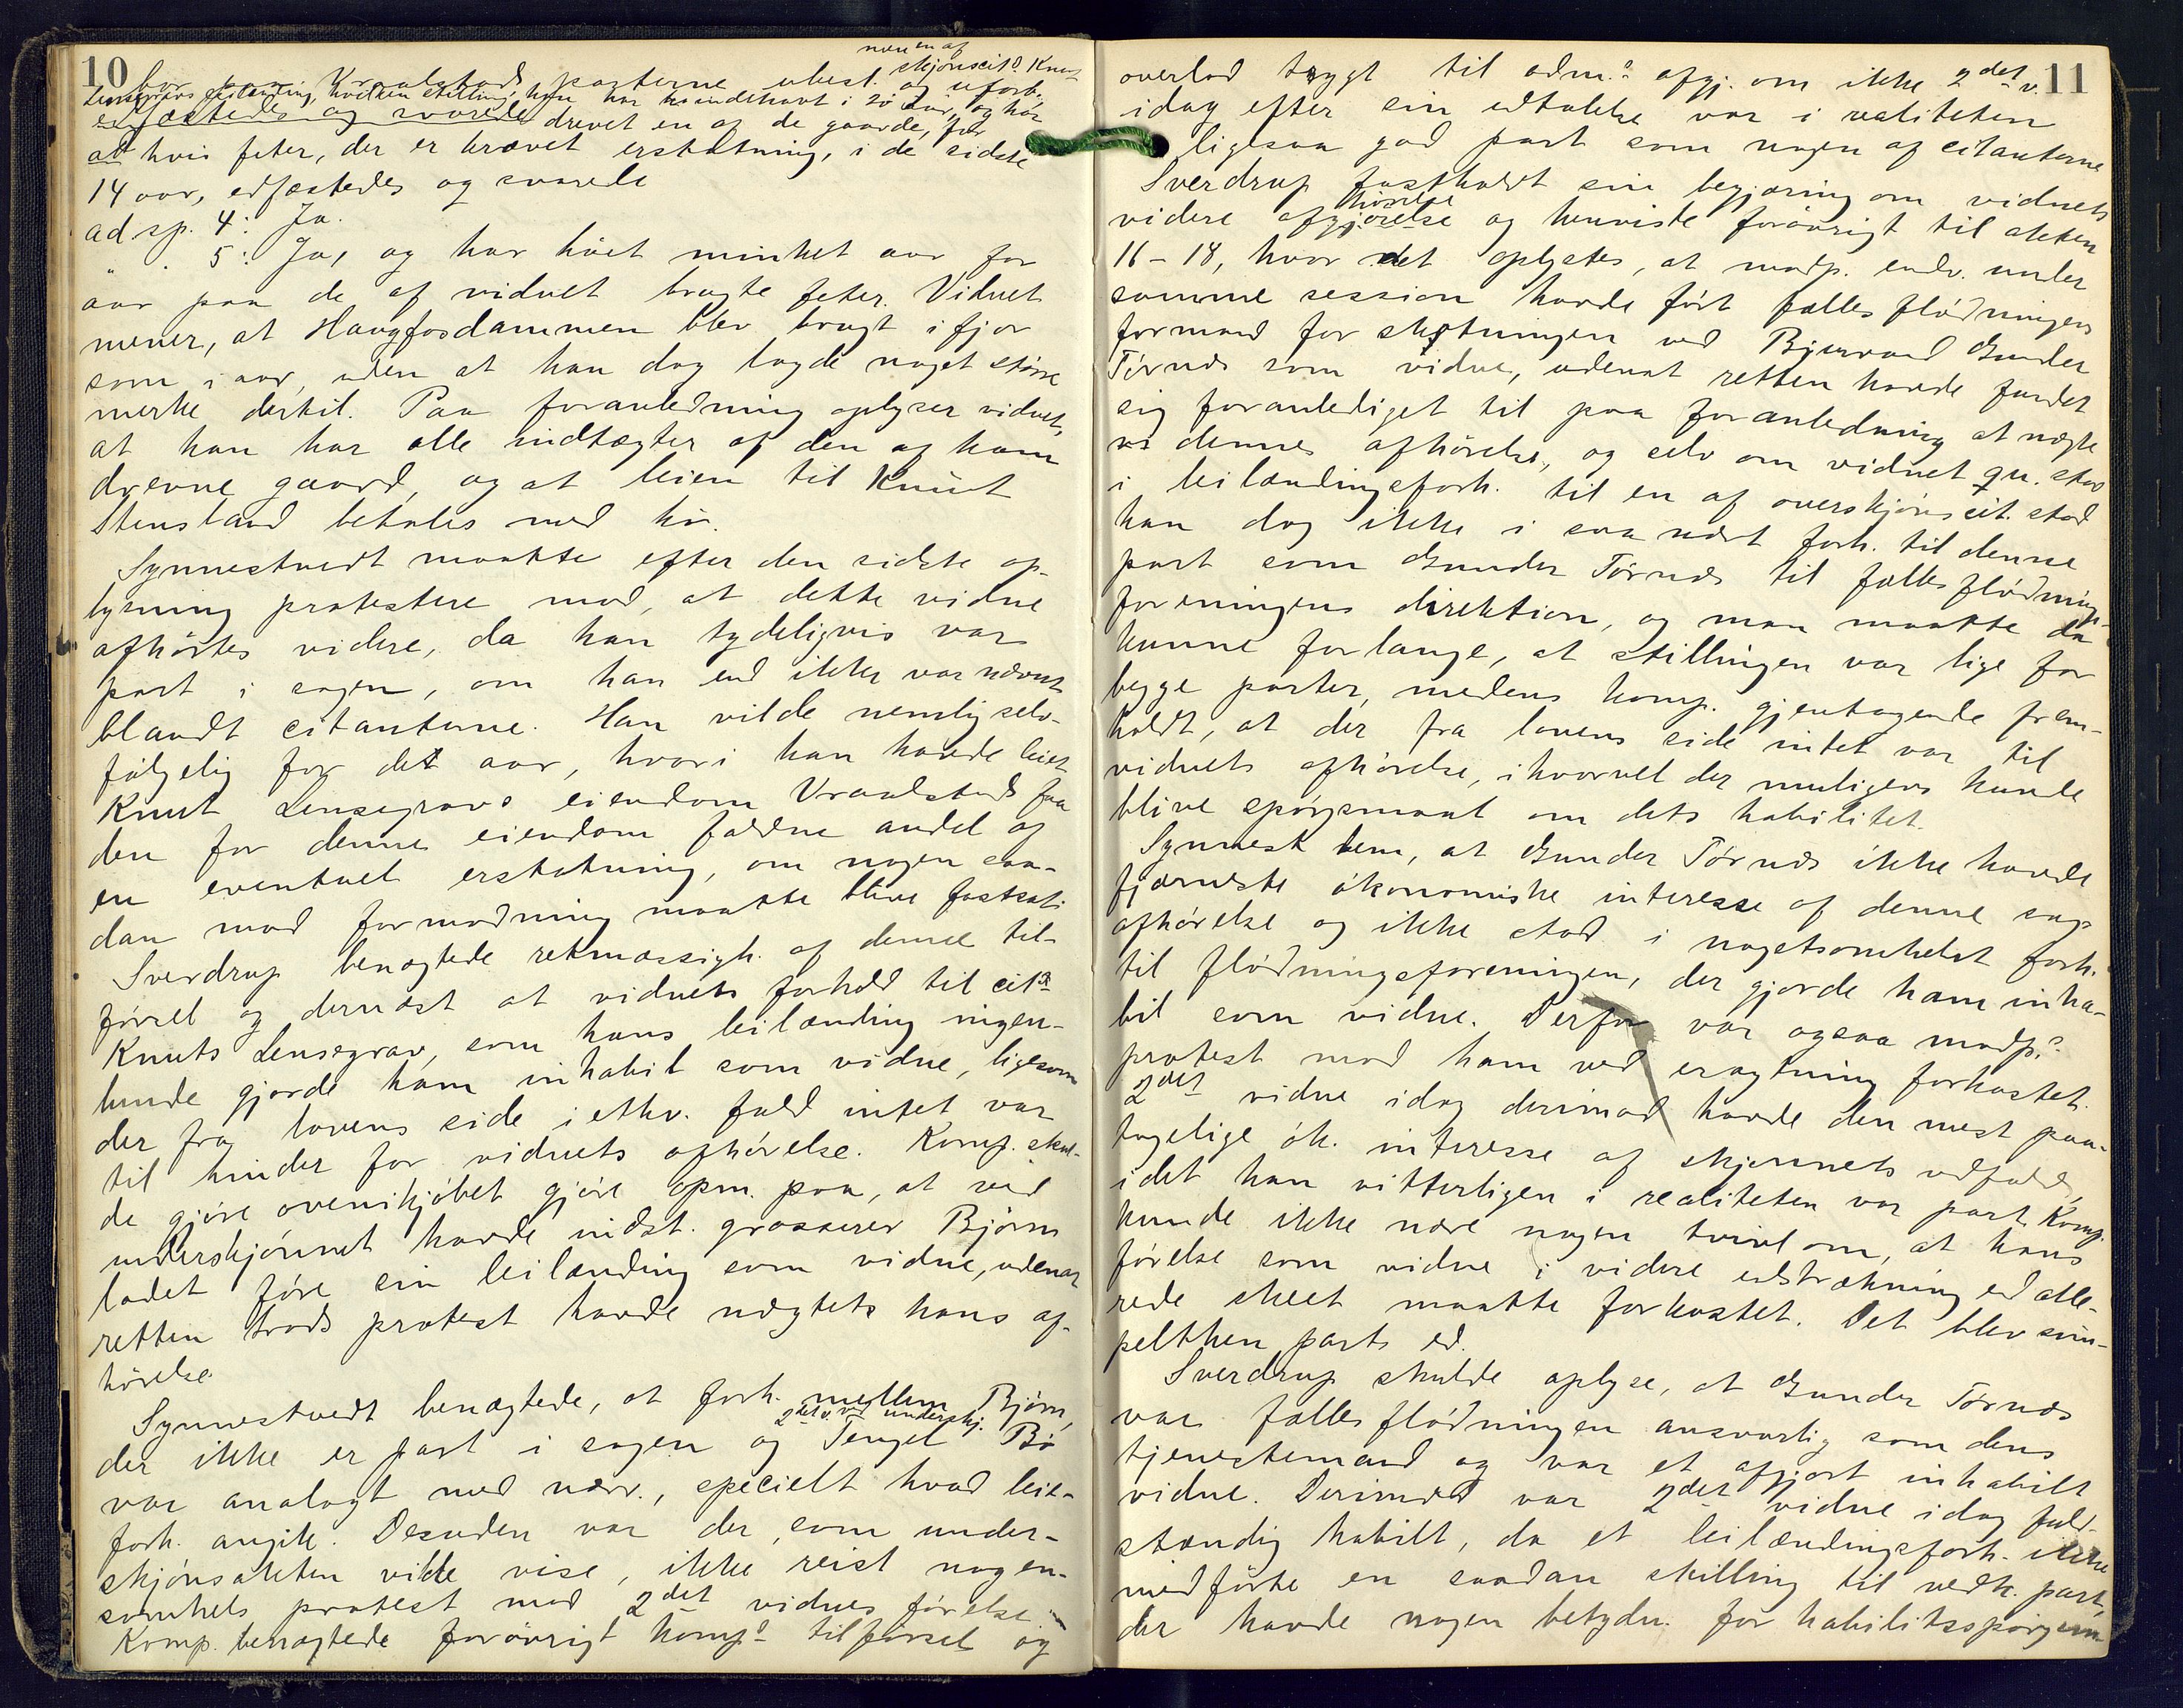 10
bor paa Kraalstad, parterne ubesl. og uforb.
men en af skjönscit.s Knut
Lensegravs leilænding, hvilken stilling han har indehavt i 20 aar, og har
edfæstedes og svarede drevet en af de gaarde, for
at hvis feter, der er krævet erstatning, i de sidste
14 aar, edfæstedes og svarede
ad sp. 4: Ja.
" . 5: Ja, og har höiet minket aar for
aar paa de af vidnet brugte feter. Vidnet
mener, at Haugfosdammen blev brugt i fjor
som i aar, uden at han dog lagde noget större
merke dertil. Paa foranledning oplyser vidnet,
at han har alle indtægter af den af ham
drevne gaard, og at leien til Knut
Stensland betales med hö.
Synnestvedt maatte efter den sidste op-
lysning protestere mod, at dette vidne
afhörtes videre, da han tydeligvis var
part i sagen, om han end ikke var nævnt
blandt citanterne. Han vilde nemlig selv-
fölgelig for det aar, hvori han havde leiet
Knut Lensegravs eiendom Vraalstad faa
den for denne eiendom faldne andel af
en eventuel erstatning, om nogen saa-
dan mod formodning maatte blive fastsat.
Sverdrup benægtede retmæssigh. af denne til-
försel og dernæst at vidnets forhold til cit.s
Knuts Lensegrav, som hans leilænding ingen-
lunde gjorde ham inhabil som vidne, ligesom
der fra lovens side i ethv. fald intet var
til hinder for vidnets afhörelse. Komp. skul-
de gjöre ovenikjöbet gjöre opm. paa, at ved
underskjönnet havde indst. grosserer Björn
ladet före sin leilænding som vidne, udenat
retten trods protest havde nægtets hans af-
hörelse.
Synnestvedt benægtede, at forh. mellem Björn,
der ikke er part i sagen og 2det v. v. underskj. Tengel Bö
var analogt med nærv., specielt hvad leie-
forh. angik. Desuden var der, som under-
skjönsakten vilde vise, ikke reist nogen-
somhels protest mod 2det vidnes förelse.
Komp. benægtede forövrigt komp.s tilförsel og
11
overlod trygt til adm.s afgj. om ikke 2det v.
idag efter sin udtalelse var i realiteten
ligesaa god part som nogen af citanterne
Sverdrup fastholdt sin begjæring om vidnets
videre afgjörelse hörelse og henviste forövrigt til akten
16 - 18, hvor det oplystes, at modp. endv. under
samme session havde fört fællesflödningens
formand for skötningen ved Bjurvand Gunder
Törnes som vidne, udenat retten havde fundet
sig foranlediget til paa foranledning at nægte
denne afhörelse, og selv om vidnet qu. stod
i leilændingsforh. til en af overskjönscit. stod
han dog ikke i saa nært forh. til denne
part som Gunder Törnes til fællesflödnings-
foreningens direktion, og man maatte da
kunne forlange, at stillingen var lige for
begge parter, medens komp. gjentagende frem-
holdt, at der fra lovens side intet var til
vidnets afhörelse, ihvorvel der muligens kunde
blive spörgsmaal om dets habilitet.
Synnest bem, at Gunder Törnes ikke havde
fjærneste ökonomiske interesse af denne sags
afhörelse og ikke stod i nogetsomhelst forh.
til flödningsforeningen, der gjorde ham inha-
bil som vidne. Derfor var ogsaa modp.s
protest mod ham ved eragtning forkastet.
2det vidne idag derimod havde den mest paa-
tagelige ök. interesse af skjønnets udfald,
idet han vitterligen i realiteten var part. Komp.
kunde ikke nære nogen tvivl om, at hans
förelse som vidne i videre udstrækning end alle-
rede skeet maatte forkastet. Det blev sim-
pelthen parts ed.
Sverdrup skulde oplyse, at Gunder Törnes
var fællesflödningen ansvarlig som dens
tjenestemand og var et afgjort inhabilt
vidne. Derimod var 2det vidne idag fuld-
stændig habilt, da et leilændingsforh. ikke
medförte en saadan stilling til vedk. part,
der havde nogen betydn. for habilitsspörgsm